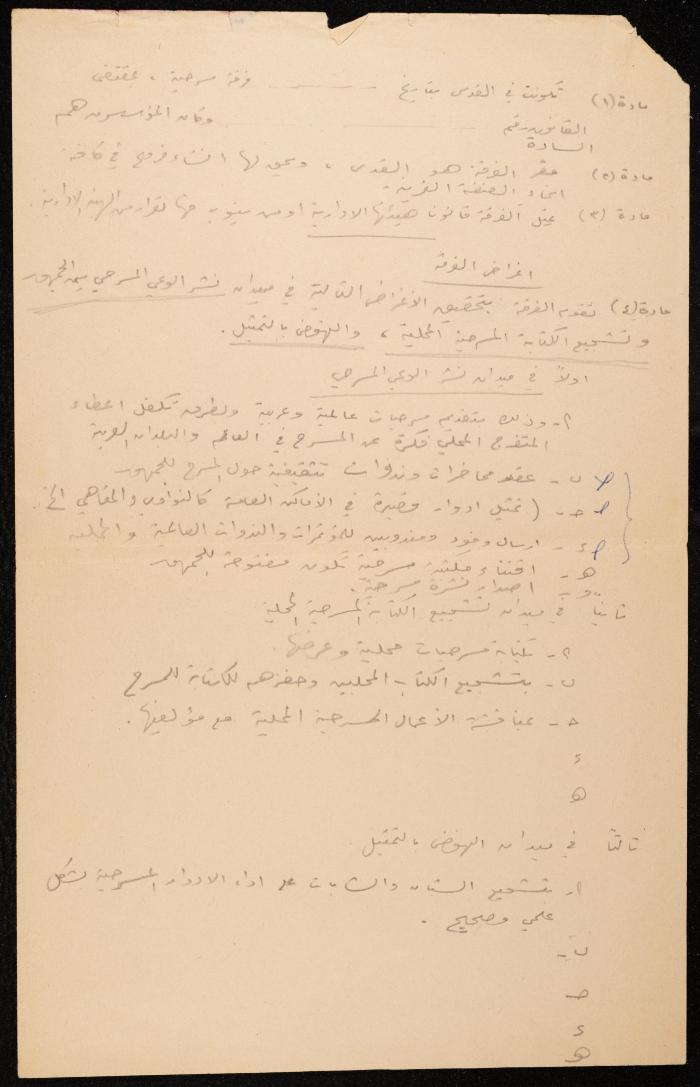 مادة (١) تكونت في القدس بتاريخ ــــــ فرقة مسرحية ، بمقتضى
القانون رقم ــــــ وكان المؤسسون هم
السادة
مادة (٢) مقر الفرقة هو القدس ، ويحق لها انشاء فروع في كافة
انحاء الضفة الغربية
مادة (٣) يمثل الفرقة قانونا هيئتها الادارية او من ينوب عنها بقرار من الهيئة الادارية .
اغراض الفرقة
مادة (٤) تقوم الفرقة بتحقيق الاغراض التالية في ميدان نشر الوعي المسرحي بين الجمهور
وتشجيع الكتابة المسرحية المحلية ، والنهوض بالتمثيل .
اولاً في ميدان نشر الوعي المسرحي
٢ـ وذلك بتقديم مسرحيات عالمية وعربية وبطرق تكفل اعطاء
المتفرج المحلي فكرة عن المسرح في العالم والبلدان العربية
ب - عقد محاضرات وندوات تثقيفية حول المسرح للجمهور
حـ - ( تمثيل ادوار قصيرة في الأماكن العامة كالنوادي والمقاهي الخ .
ء - ارسال وفود ومندوبين للمؤتمرات والندوات العالمية والمحلية
هـ - اقتناء مكتبة مسرحية تكون مفتوحة للجمهور
و - اصدار نشرة مسرحية .
ثانياً في ميدان تشجيع الكتابة المسرحية المحلية
٢ - كتابة مسرحيات محلية وعرضها .
ب - بتشجيع الكتاب المحليين وحفزهم للكتابة للمسرح
حـ - بمناقشة الأعمال المسرحية المحلية مع مؤلفيها .
ء
هـ
ثالثاً في ميدان النهوض بالتمثيل
ا - بتشجيع الشبان والشابات على اداء الادوار المسرحية بشكل
علمي وصحيح .
ب -
حـ
ء
هـ